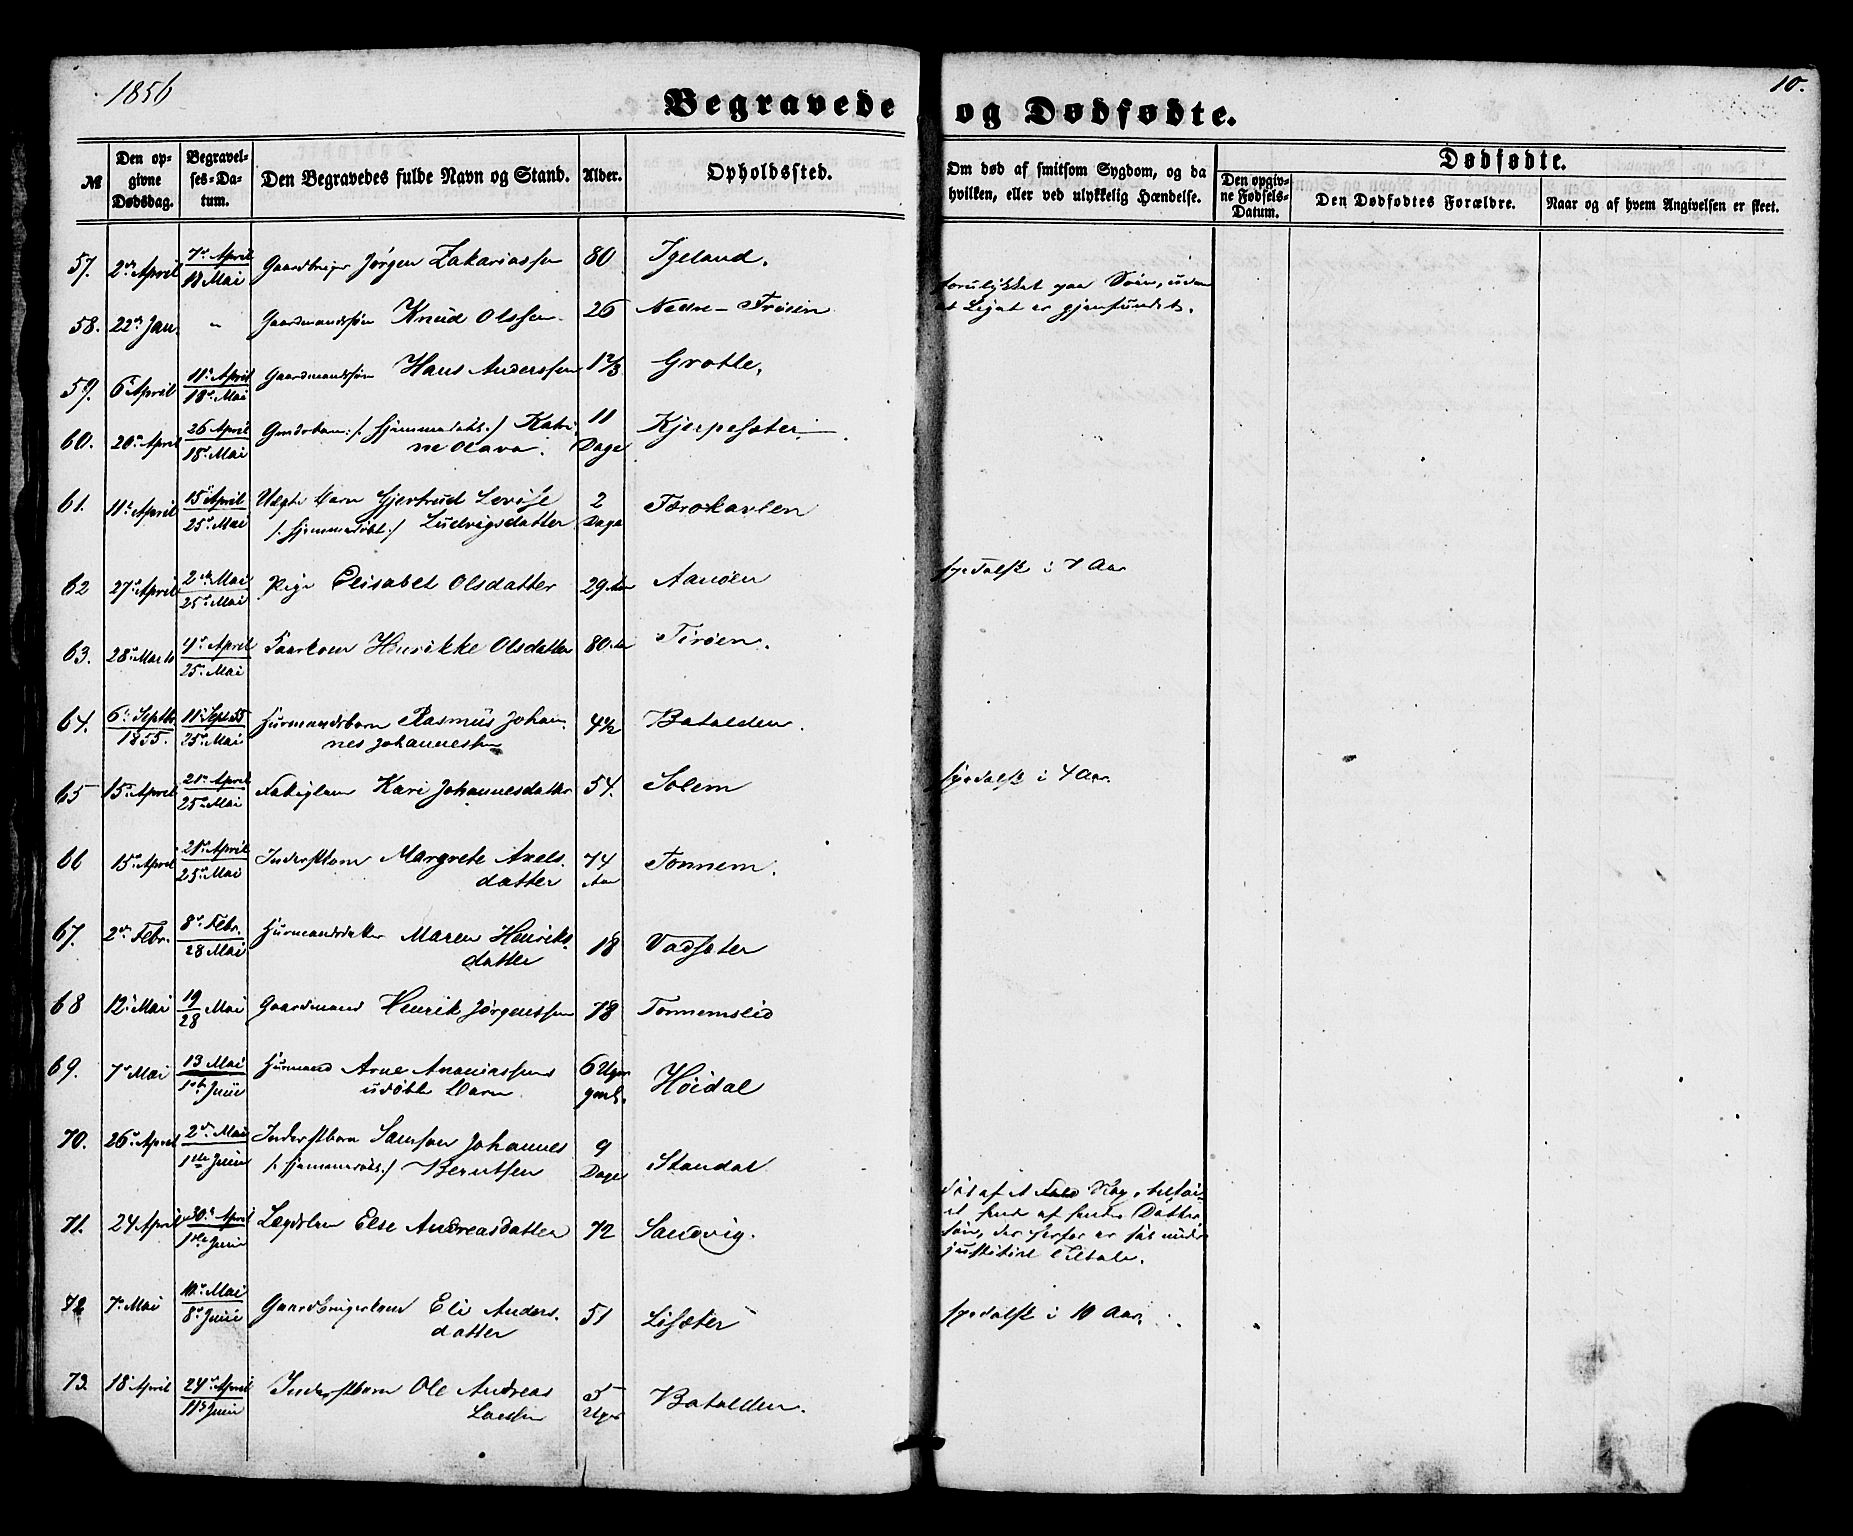 1856
10.
Begravede og Dødfødte.
№ Den opgivne Dødsdag. Begravelses-Datum. Den Begravedes fulde Navn og Stand. Alder. Opholdssted. Om død af smitsom Sygdom, og da hvilken, eller ved ulykkelig Hændelse. Dødfødte. Den opgivne Fødsels-Datum. Den Dødfødtes Forældre. Naar og af hvem Angivelsen er skeet.
57. 2den April 7de April / 18 Mai Gaardbruger Jørgen Zakariassen 80 Igeland.
58. 22de Jan. " Gaardmandssøn Knud Olssen 26 Nedre-Trøien forulykket paa Søen, uden at Liget er gjenfundet.
59. 6te April 11te April / 18de Mai Gaardmandssøn Hans Anderssen 1 2/3 Grotle.
60. 20de April 26 April / 18de Mai /: hjemmedøbt :/ Katrine Olava. 11 Dage Kjerpesæter.
61. 11te April 15de April / 25de Mai Uægte Barn Gjertrud Lovise
/: hjemmedøbt :/ Ludvigsdatter 2 Dage Torskavlen
62 27de April 2den Mai / 25de Mai Pige Elisabet Olsdatter 29 Aar Aanøen spedalsk i 7 Aar
63. 28de Marts 4de April / 25de Mai Henrikke Olsdatter 80 Aar Tirøen.
64. 6te Septbr. 1855. 11te Sept 55 / 25de Mai Huusmandsbarn Rasmus Johannes Johannessen 4 1/2 Batalden.
65 15de April 21de April / 25de Mai Kari Johannesdatter 54. Solem spedalsk i 4 Aar
66 15de April 21de April / 25de Mai Margrete Axelsdatter 74 Aar Tonnem.
67. 2den Febr. 8de Febr. / 28 Mai Huusmandsdatter Maren Henriksdatter 18 Vadsæter
68 12te Mai 19/28 Mai Gaardmand Henrik Jørgenssen 78 Tonnemslid
69. 7de Mai 13 Mai / 1ste Juni Huusmand Arne Ananiassens udøbte Barn. 6 Uger gml. Høidal
70. 26de April 2den Mai / 1ste Juni Inderstbarn Samson Johannes
/: hjemmedøbt :/ Berntsen 9 Dage Standal
71. 24 April 30te April / 1ste Juni Lægdslem Else Andreasdatter 72 Sandvig. død af et Slag, tilføiet hende af hendes Dattersøn, der herfor er sat under justitiel Tiltale.
72 7de Mai 10de Mai / 8de Juni Eli Andersdatter 51 Lisæter spedalsk i 10 Aar.
73. 18de April 24de April / 11te Juni Inderstbarn Ole Andreas Larssen 5 Uger Batalden.